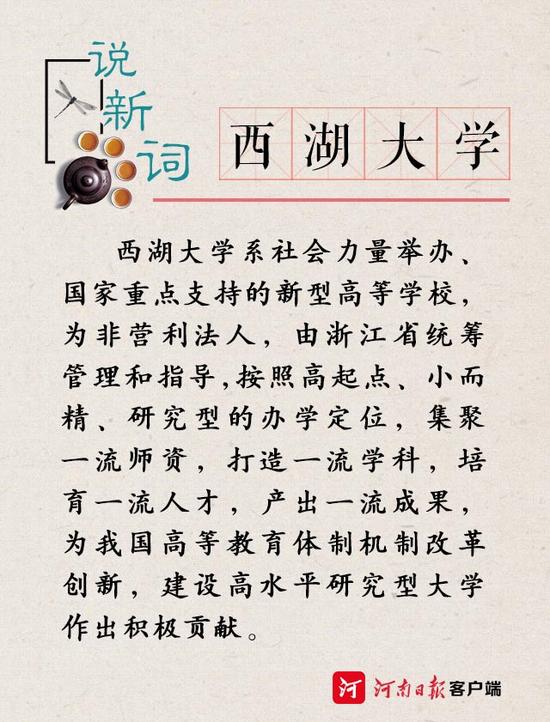 说新词
西湖大学
西湖大学系社会力量举办、
国家重点支持的新型高等学校，
为非营利法人，由浙江省统筹
管理和指导，按照高起点、小而
精、研究型的办学定位，集聚
一流师资，打造一流学科，培
育一流人才，产出一流成果，
为我国高等教育体制机制改革
创新，建设高水平研究型大学
作出积极贡献。
河 河南日报客户端